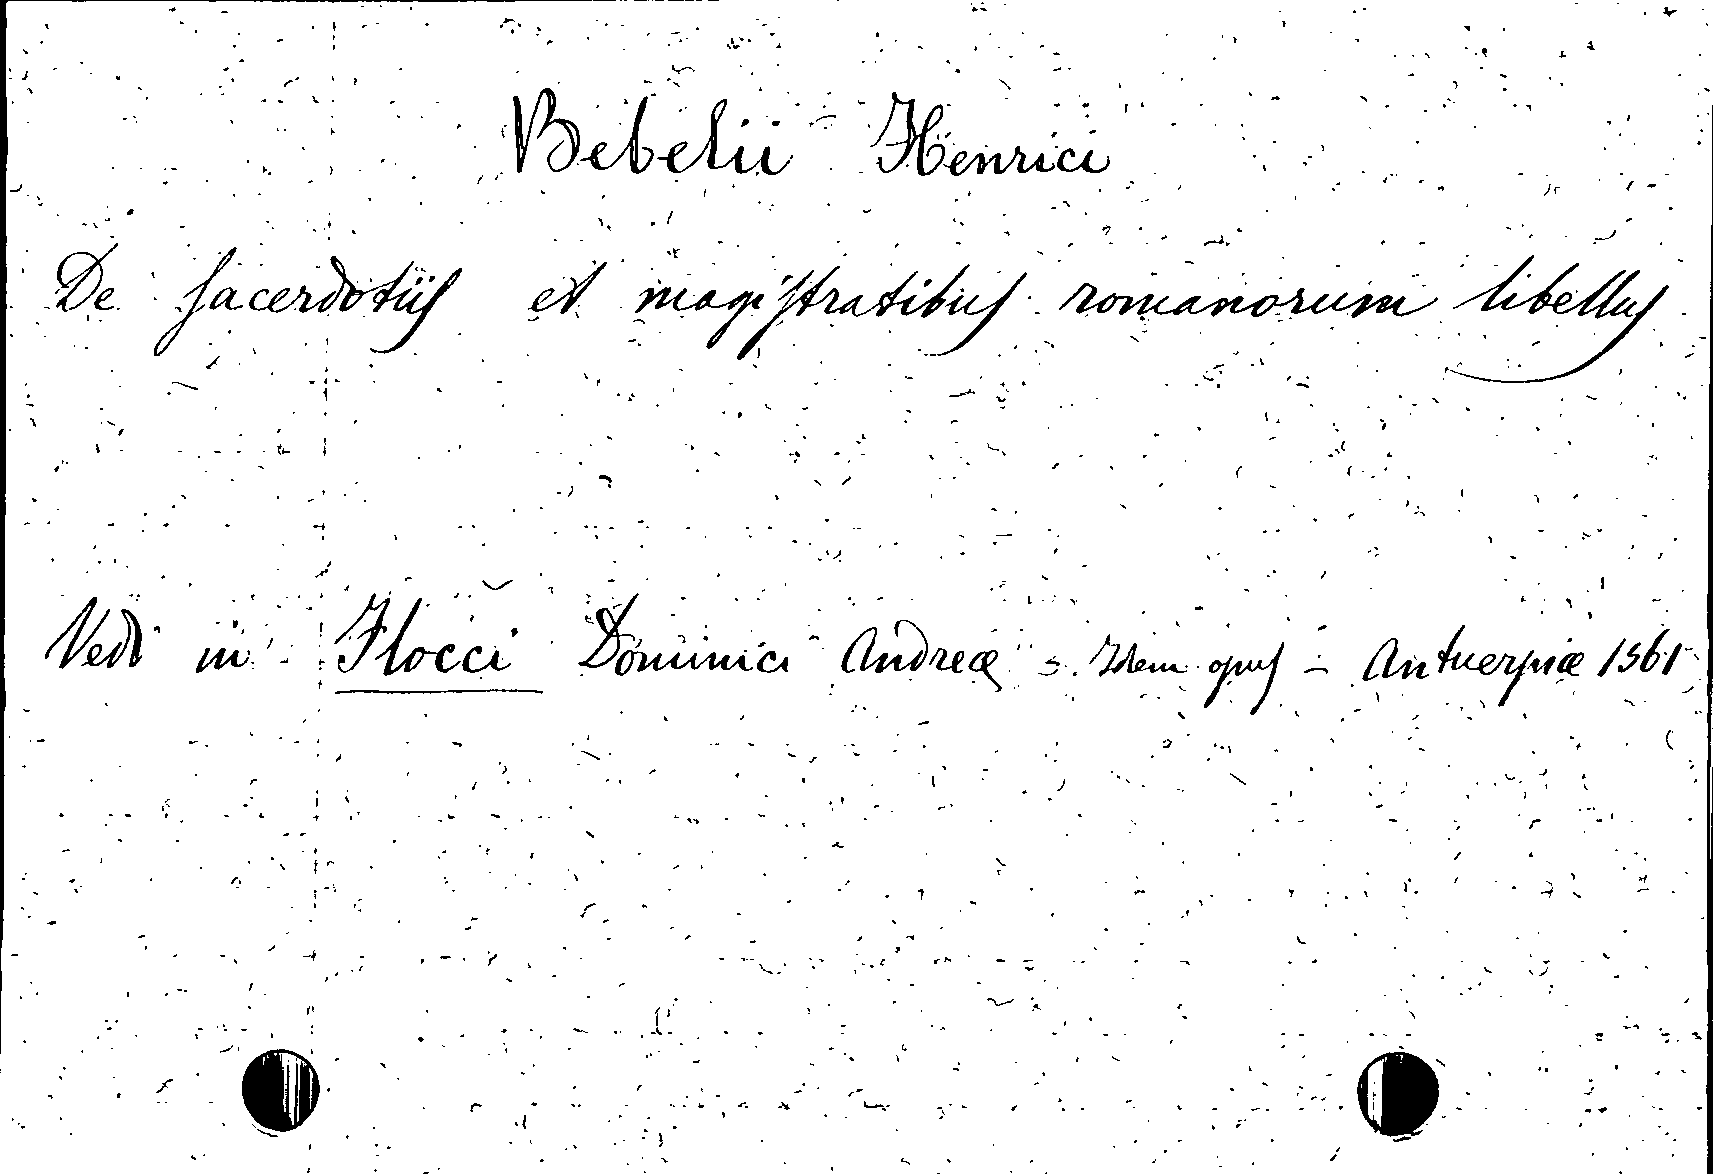 Bebelii Henrici
De sacerdotiis et magistratibus romanorum libellus
Vedi in Flocci Dominici Andreæ - Idem opus - Antuerpiæ 1561